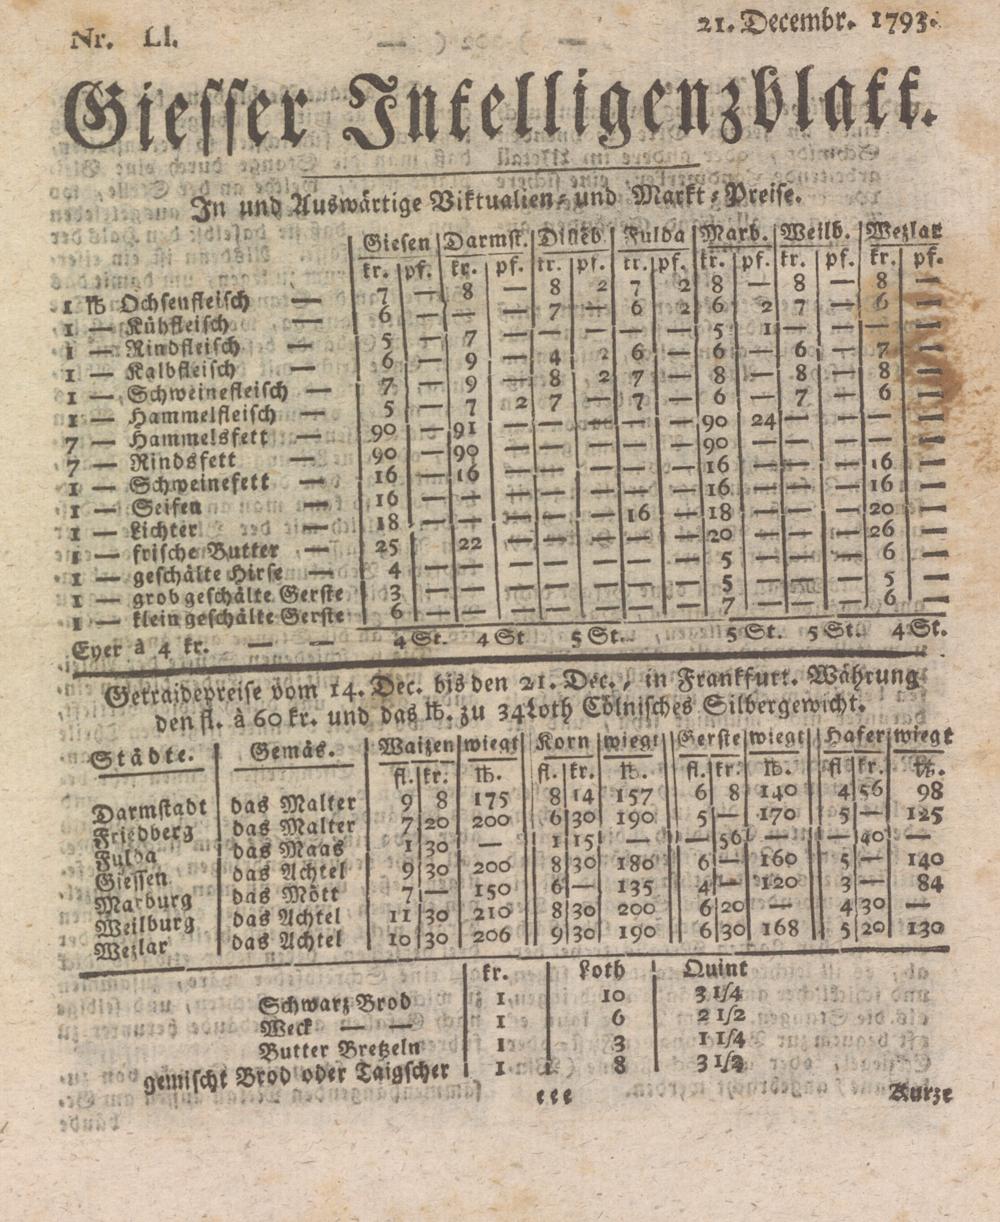 Nr. LI. 21. Decembr. 1793.
Giesser Intelligenzblatt.
In und Auswärtige Viktualien- und Markt-Preise.
Giesen Darmst. Dilleb. Fulda Marb. Weilb. Wezlar
kr. pf. kr. pf. kr. pf. kr. pf. kr. pf. kr. pf. kr. pf.
1 ℔ Ochsenfleisch — 7 — 8 — 8 2 7 2 8 — 8 — 8 —
1 — Kühfleisch 6 — — — 7 — 6 2 6 2 7 — 6 —
1 — Rindfleisch — 5 — 7 — — — — — 5 1 — — — —
1 — Kalbfleisch — 6 — 9 — 4 2 6 — 6 — 6 — 7 —
1 — Schweinefleisch — 7 — 9 — 8 2 7 — 8 — 8 — 8 —
1 — Hammelfleisch — 5 — 7 2 7 — 7 — 6 — 7 — 6 —
7 — Hammelsfett — 90 — 91 — — — — — 90 24 — — — —
7 — Rindsfett — 90 — 90 — — — — — 90 — — — — —
1 — Schweinefett — 16 — 16 — — — — — 16 — — — 16 —
1 — Seifen — 16 — — — — — — — 16 — — — 16 —
1 — Lichter — 18 — — — — — 16 — 18 — — — 20 —
1 — frische Butter — 25 — 22 — — — — — 20 — — — 26 —
1 — geschälte Hirse — 4 — — — — — — — 5 — — — 6 —
1 — grob geschälte Gerste 3 — — — — — — — 5 — — — 5 —
1 — klein geschälte Gerste 6 — — — — — — — 7 — — — 6 —
Eyer à 4 kr. — — 4 St. 4 St 5 St. 5 St. 5 St. 4 St.
Getraidepreise vom 14. Dec. bis den 21. Dec., in Frankfurt. Währung
den fl. à 60 kr. und das ℔. zu 34 Loth Cölnisches Silbergewicht.
Städte. Gemäs. Waizen wiegt Korn wiegt Gerste wiegt Hafer wiegt
fl. kr. ℔. fl. kr. ℔. fl. kr. ℔. fl kr. ℔.
Darmstadt das Malter 9 8 175 8 14 157 6 8 140 4 56 98
Friedberg das Malter 7 20 200 6 30 190 5 — 170 5 — 125
Fulda das Maas 1 30 — 1 15 — — 56 — — 40 —
Giessen das Achtel 9 30 200 8 30 180 6 — 160 5 — 140
Marburg das Mött 7 — 150 6 — 135 4 — 120 3 — 84
Weilburg das Achtel 11 30 210 8 30 200 6 20 — 4 30 —
Wezlar das Achtel 10 30 206 9 30 190 6 30 168 5 20 130
kr. Loth Quint
Schwarz Brod 1 10 3 1/4
Weck — — 1 6 2 1/2
Butter Bretzeln 1 3 1 1/4
gemischt Brod oder Taigscher 1 8 3 1/2
eee Kurze